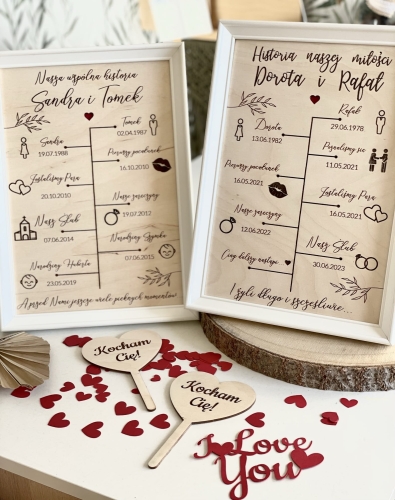 Nasza wspólna historia
Sandra i Tomek
Tomek
02.04.1987
Sandra
19.07.1988
Pierwszy pocałunek
16.10.2010
Zostaliśmy Parą
20.10.2010
Nasze zaręczyny
19.07.2012
Nasz Ślub
07.06.2014
Narodziny Szymka
07.06.2015
Narodziny Huberta
23.05.2019
A przed Nami jeszcze wiele pięknych momentów
Historia naszej miłości
Dorota i Rafał
Rafał
29.06.1978
Dorota
13.06.1982
Poznaliśmy się
11.05.2021
Pierwszy pocałunek
16.05.2021
Zostaliśmy Parą
16.05.2021
Nasze zaręczyny
12.06.2022
Nasz Ślub
30.06.2023
Ciąg dalszy nastąpi
I żyli długo i szczęśliwie...
Kocham
Cię!
Kocham
Cię!
I Love
You